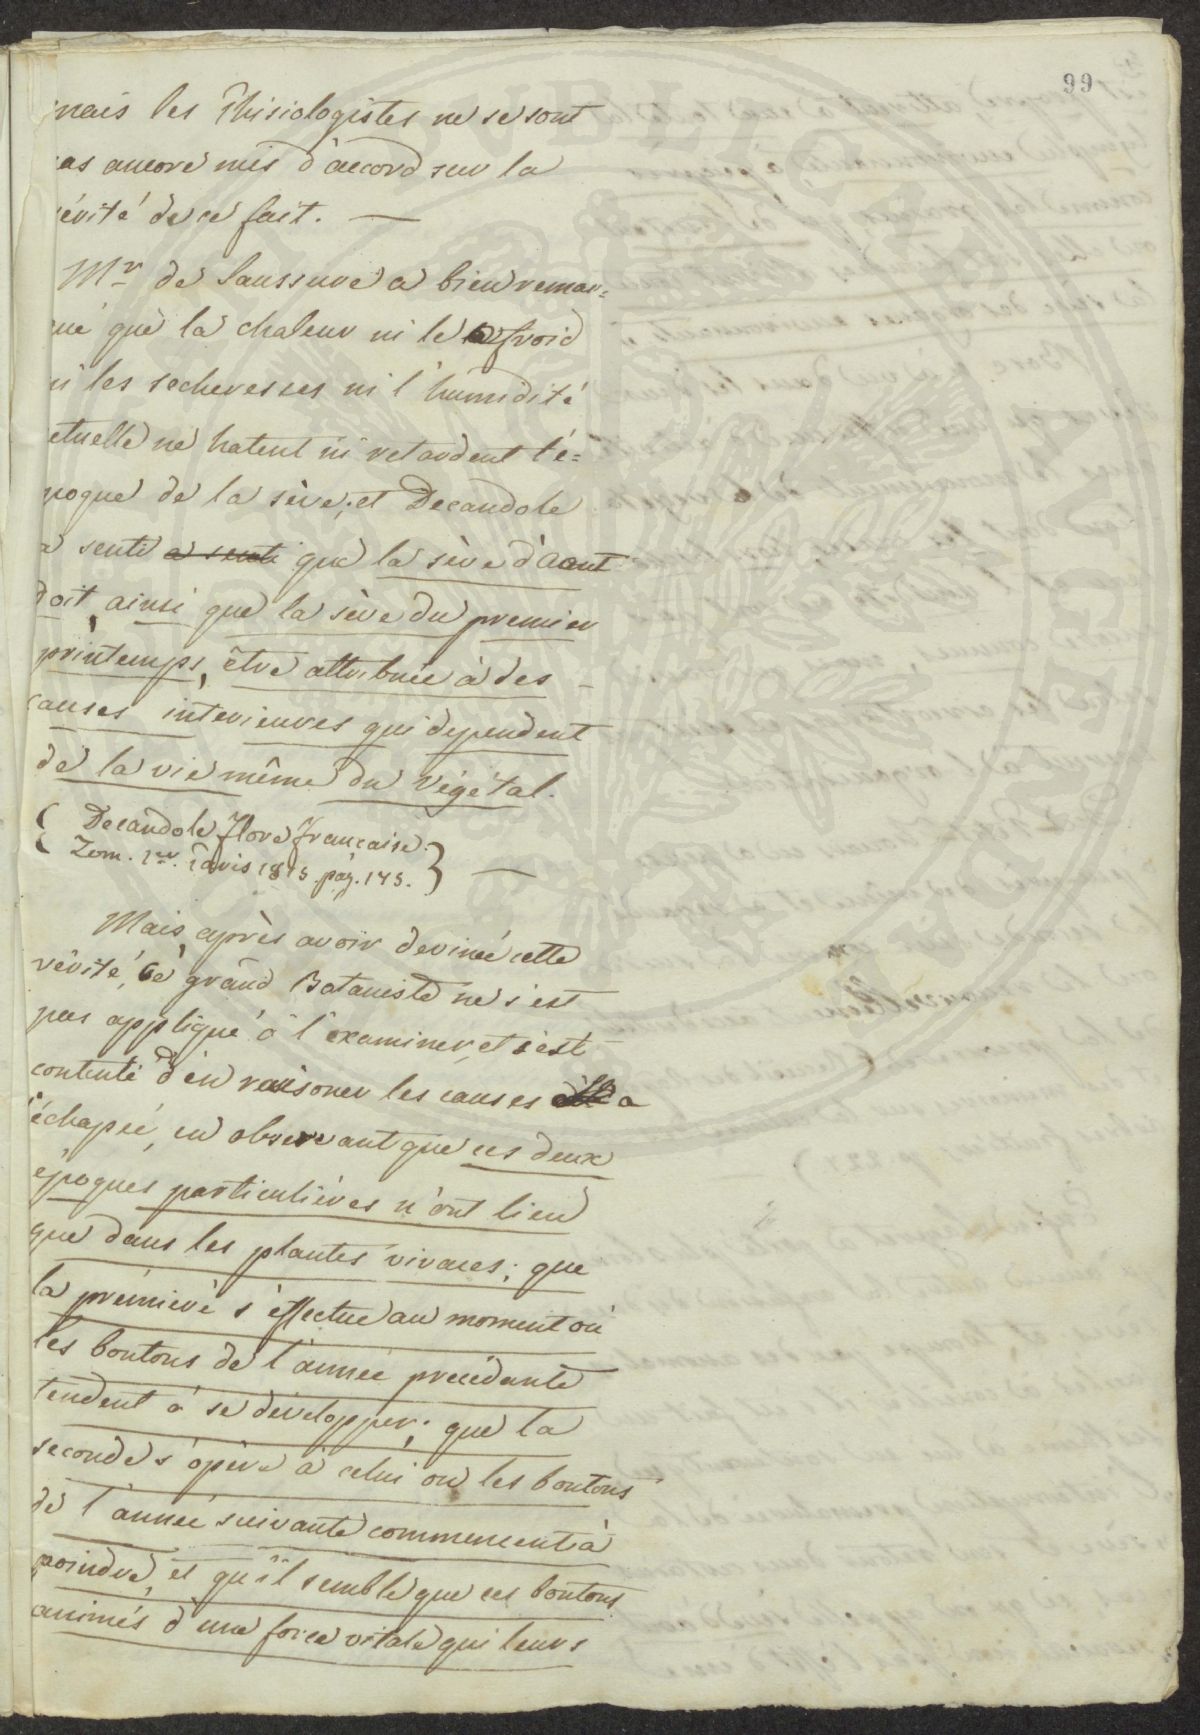 99
mais les Phisiologistes ne se sont
as ancore mis d'accord sur la
vérité de ce fait. —
Mr de Saussure a bien remar=
qué que la chaleur ni le froid
ni les secheresses ni l'humidité
ctuelle ne hatent ni retardent l'é=
poque de la sève; et Decandole
a senti a senti que la sève d'Aout
doit, ainsi que la sève du premier
printemps, être attribuée à des
causes interieures qui dependent
de la vie même du Végétal.
{ Decandole flore française.
Tom. 1er. Paris 1815. pag. 145. } —
Mais après avoir deviné cette
vérité, ce grand Botaniste ne s'est
pas appliqué à l'examiner, et s'est
contenté d'en raisoner les causes a
échapée, en observant que ces deux
époques particulières n'ont lieu
que dans les plantes vivaces; que
la prémière s'éffectue au moment où
les boutons de l'année précédante
tendent à se développer; que la
seconde s'opère à celui ou les boutons
de l'année suivante commencent à
poindre, et qu'il semble que ces boutons
animés d'une force vitale qui leurs